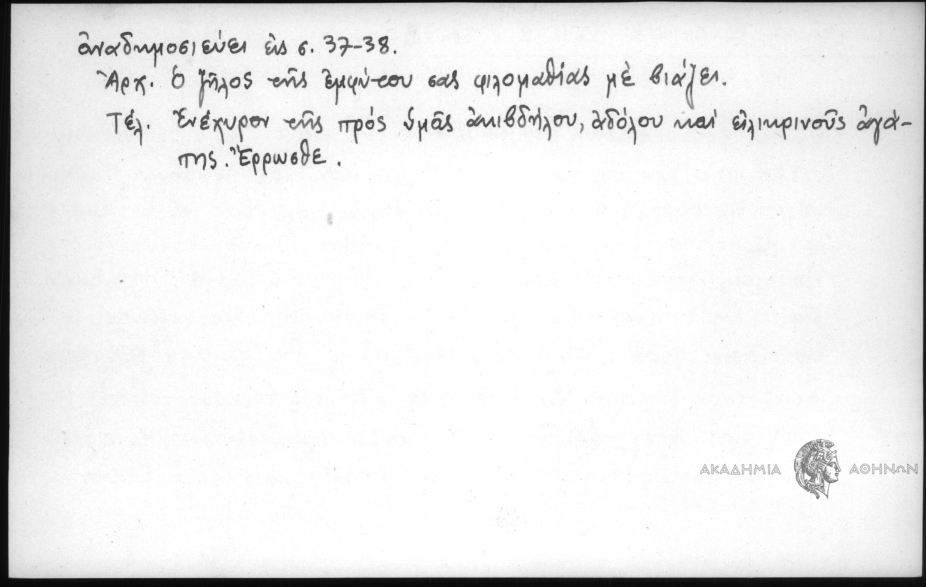 ἀναδημοσιεύει εἰς σ. 37-38.
Ἀρχ. Ὁ ζῆλος τῆς ἐμφύτου σας φιλομαθίας μὲ βιάζει.
Τέλ. Ἐνέχυρον τῆς πρός ὑμᾶς ἀκιβδήλου, ἀδόλου καί εἰλικρινοῦς ἀγά-
πης. Ἔρρωσθε.
ΑΚΑΔΗΜΙΑ ΑΘΗΝΩΝ